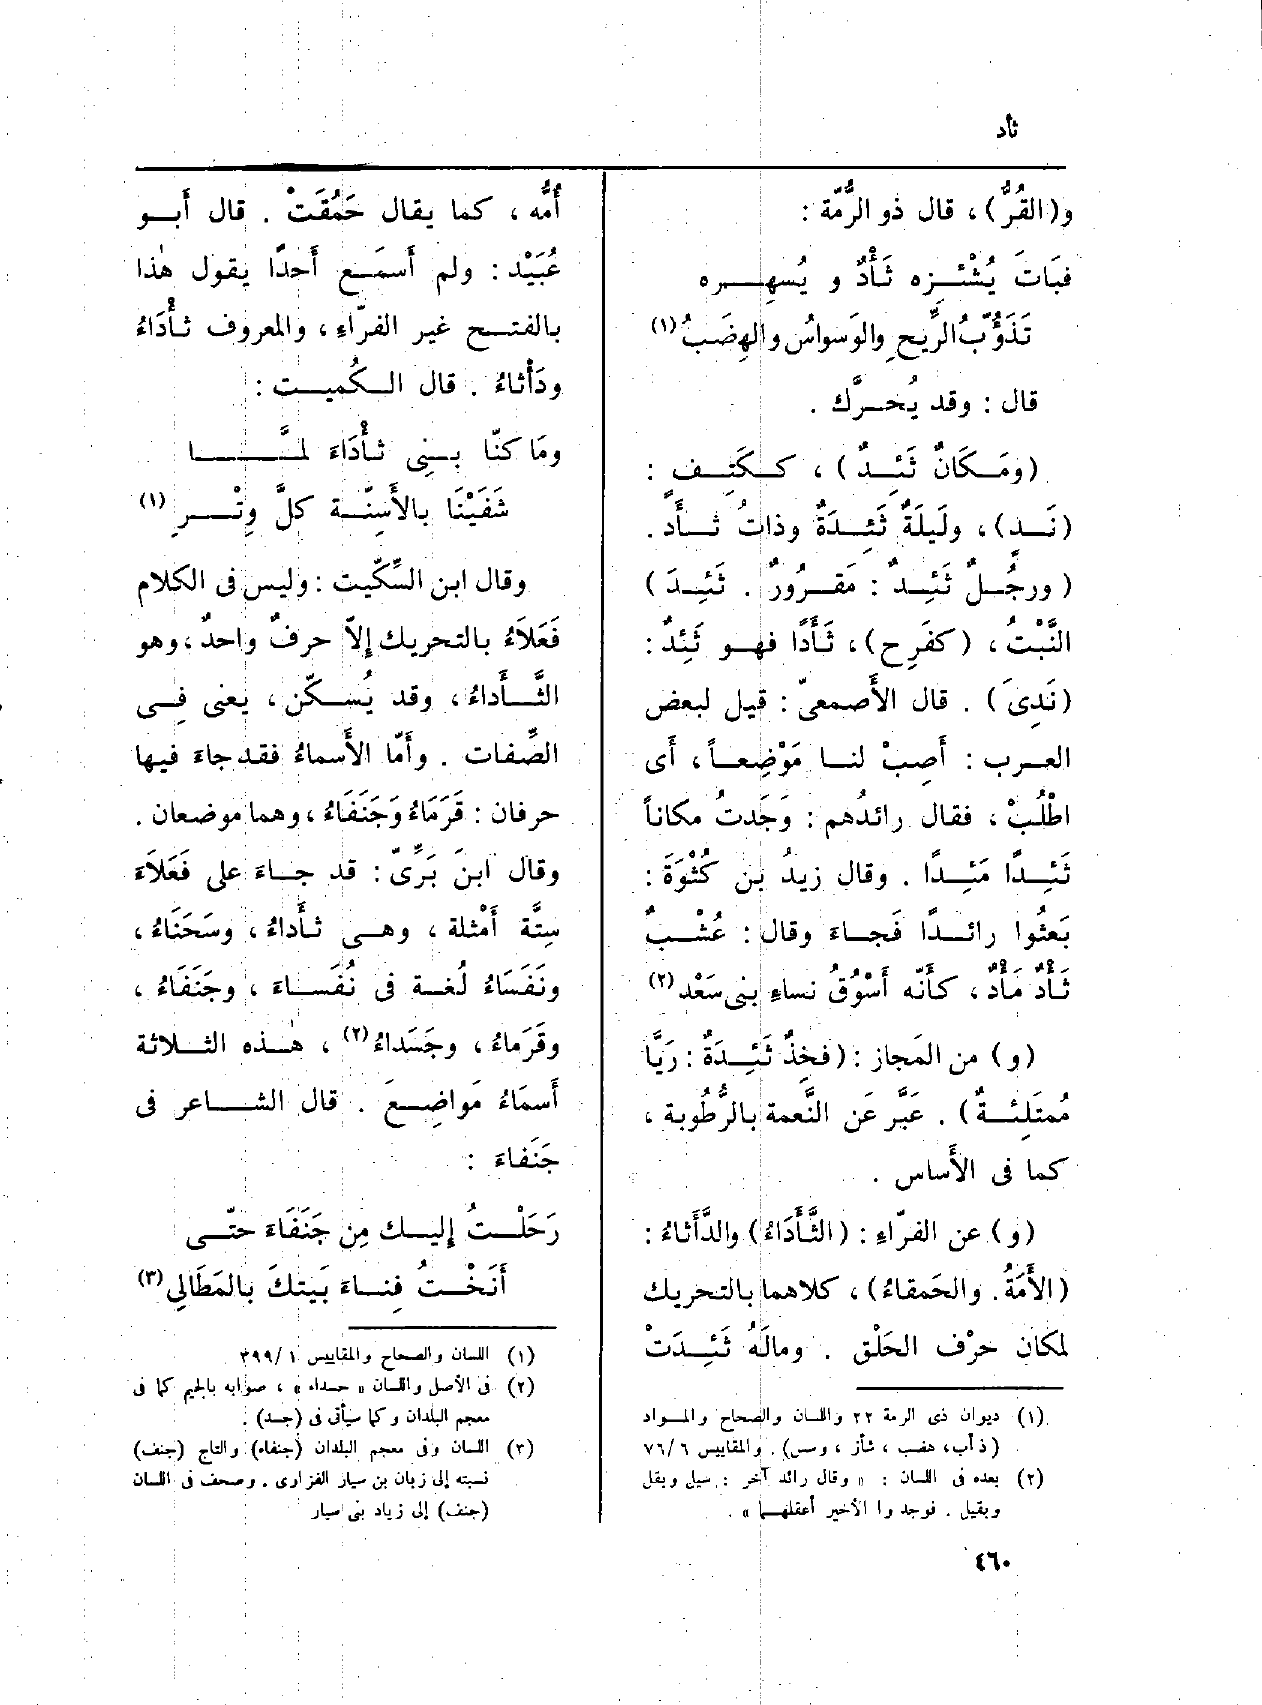 ثأد
و(القُرُّ)، قال ذو الرُّمّة :
فبَاتَ يُشْئِزه ثَأْدٌ و يُسهِره
تَذَوُّبُ الرِّيحِ والوَسواسُ والهِضَبُ (١)
قال : وقد يُحرَّك .
(ومَكَانٌ ثَئِدٌ) ، ككَتِفٍ :
(نَدٍ)، ولَيلَةٌ ثَئِدَةٌ وذاتُ ثَأَدٍ .
(ورجُلٌ ثَئِدٌ : مَقرُورٌ . ثَئِدَ)
النَّبْتُ، (كفَرِح)، ثَأَدًا فهو ثَئِدٌ :
(نَدِىَ) . قال الأَصمعىّ : قيل لبعض
العرب : أَصِبْ لنا مَوْضِعاً، أَى
اطْلُبْ، فقال رائدُهم : وَجَدتُ مكاناً
ثَئِدًا مَئِدًا . وقال زيدُ بن كُثْوَةَ :
بَعثُوا رائدًا فَجاءَ وقال : عُشْبٌ
ثَأْدٌ مَأْدٌ، كأَنّه أَسْوُقُ نساءِ بنى سَعْد (٢)
(و) من المَجاز : (فخِذٌ ثَئِدَةٌ : رَيَّا
مُمتَلِئةٌ) . عَبَّر عَن النَّعمة بالرُّطُوبة ،
كما فى الأَساس .
(و) عن الفرّاءِ : (الثَّأَدَاءُ) والدَّأَثاءُ :
(الأَمَةُ . والحَمقاءُ)، كلاهما بالتحريك
لمكان حرْف الحَلْق . ومالَهُ ثَئِدَتْ
(١) ديوان ذى الرمة ٢٢ واللسان والصحاح والمواد
(ذأب، هضب ، شأز ، وسس) . والمقاييس ٧٦/٦
(٢) بعده فى اللسان : « وقال رائد آخر : سيل وبقل
وبقيل . فوجدوا الأخير أعقلهما » .
أُمُّه، كما يقال حَمُقَتْ . قال أَبو
عُبَيْد : ولم أَسمَع أَحدًا يقول هٰذا
بالفتح غير الفرّاءِ، والمعروف ثَأْدَاءُ
ودَأْثاءُ . قال الكُميت :
ومَا كنّا بنِى ثَأْدَاءَ لمَّا
شَفَيْنَا بالأَسِنّة كلَّ وِتْرِ (١)
وقال ابن السِّكِّيت : وليس فى الكلام
فَعَلاَءُ بالتحريك إِلاّ حرفٌ واحدٌ، وهو
الثَّأَداءُ، وقد يُسكّن، يعنى فِى
الصِّفات . وأَمّا الأَسماءُ فقد جاءَ فيها
حرفان : قَرَمَاءُ وَجَنَفَاءُ، وهما موضعان .
وقال ابنَ بَرِّىّ : قد جاءَ على فَعَلاَءَ
سِتَّة أَمْثلة ، وهى ثَأَداءُ، وسَحَنَاءُ،
ونَفَسَاءُ لُغة فى نُفَساءَ، وجَنَفَاءُ،
وقَرَماءُ، وجَسَداءُ (٢) ، هٰذه الثلاثة
أَسمَاءُ مَواضِعَ . قال الشاعر فى
جَنَفاءَ :
رَحَلْتُ إِليك مِن جَنَفَاءَ حتّى
أَنَخْتُ فِناءَ بَيتكَ بالمَطَالِى (٣)
(١) اللسان والصحاح والمقاييس ٣٩٩/١
(٢) فى الأصل واللسان « حسداء » ، صوابه بالجيم كما فى
معجم البلدان وكما سيأتى فى (جسد) .
(٣) اللسان وفى معجم البلدان (جنفاء) والتاج (جنف)
نسبته إلى زبان بن سيار الفزارى . وصحف فى اللسان
(جنف) إلى زياد بنى سيار
٤٦٠